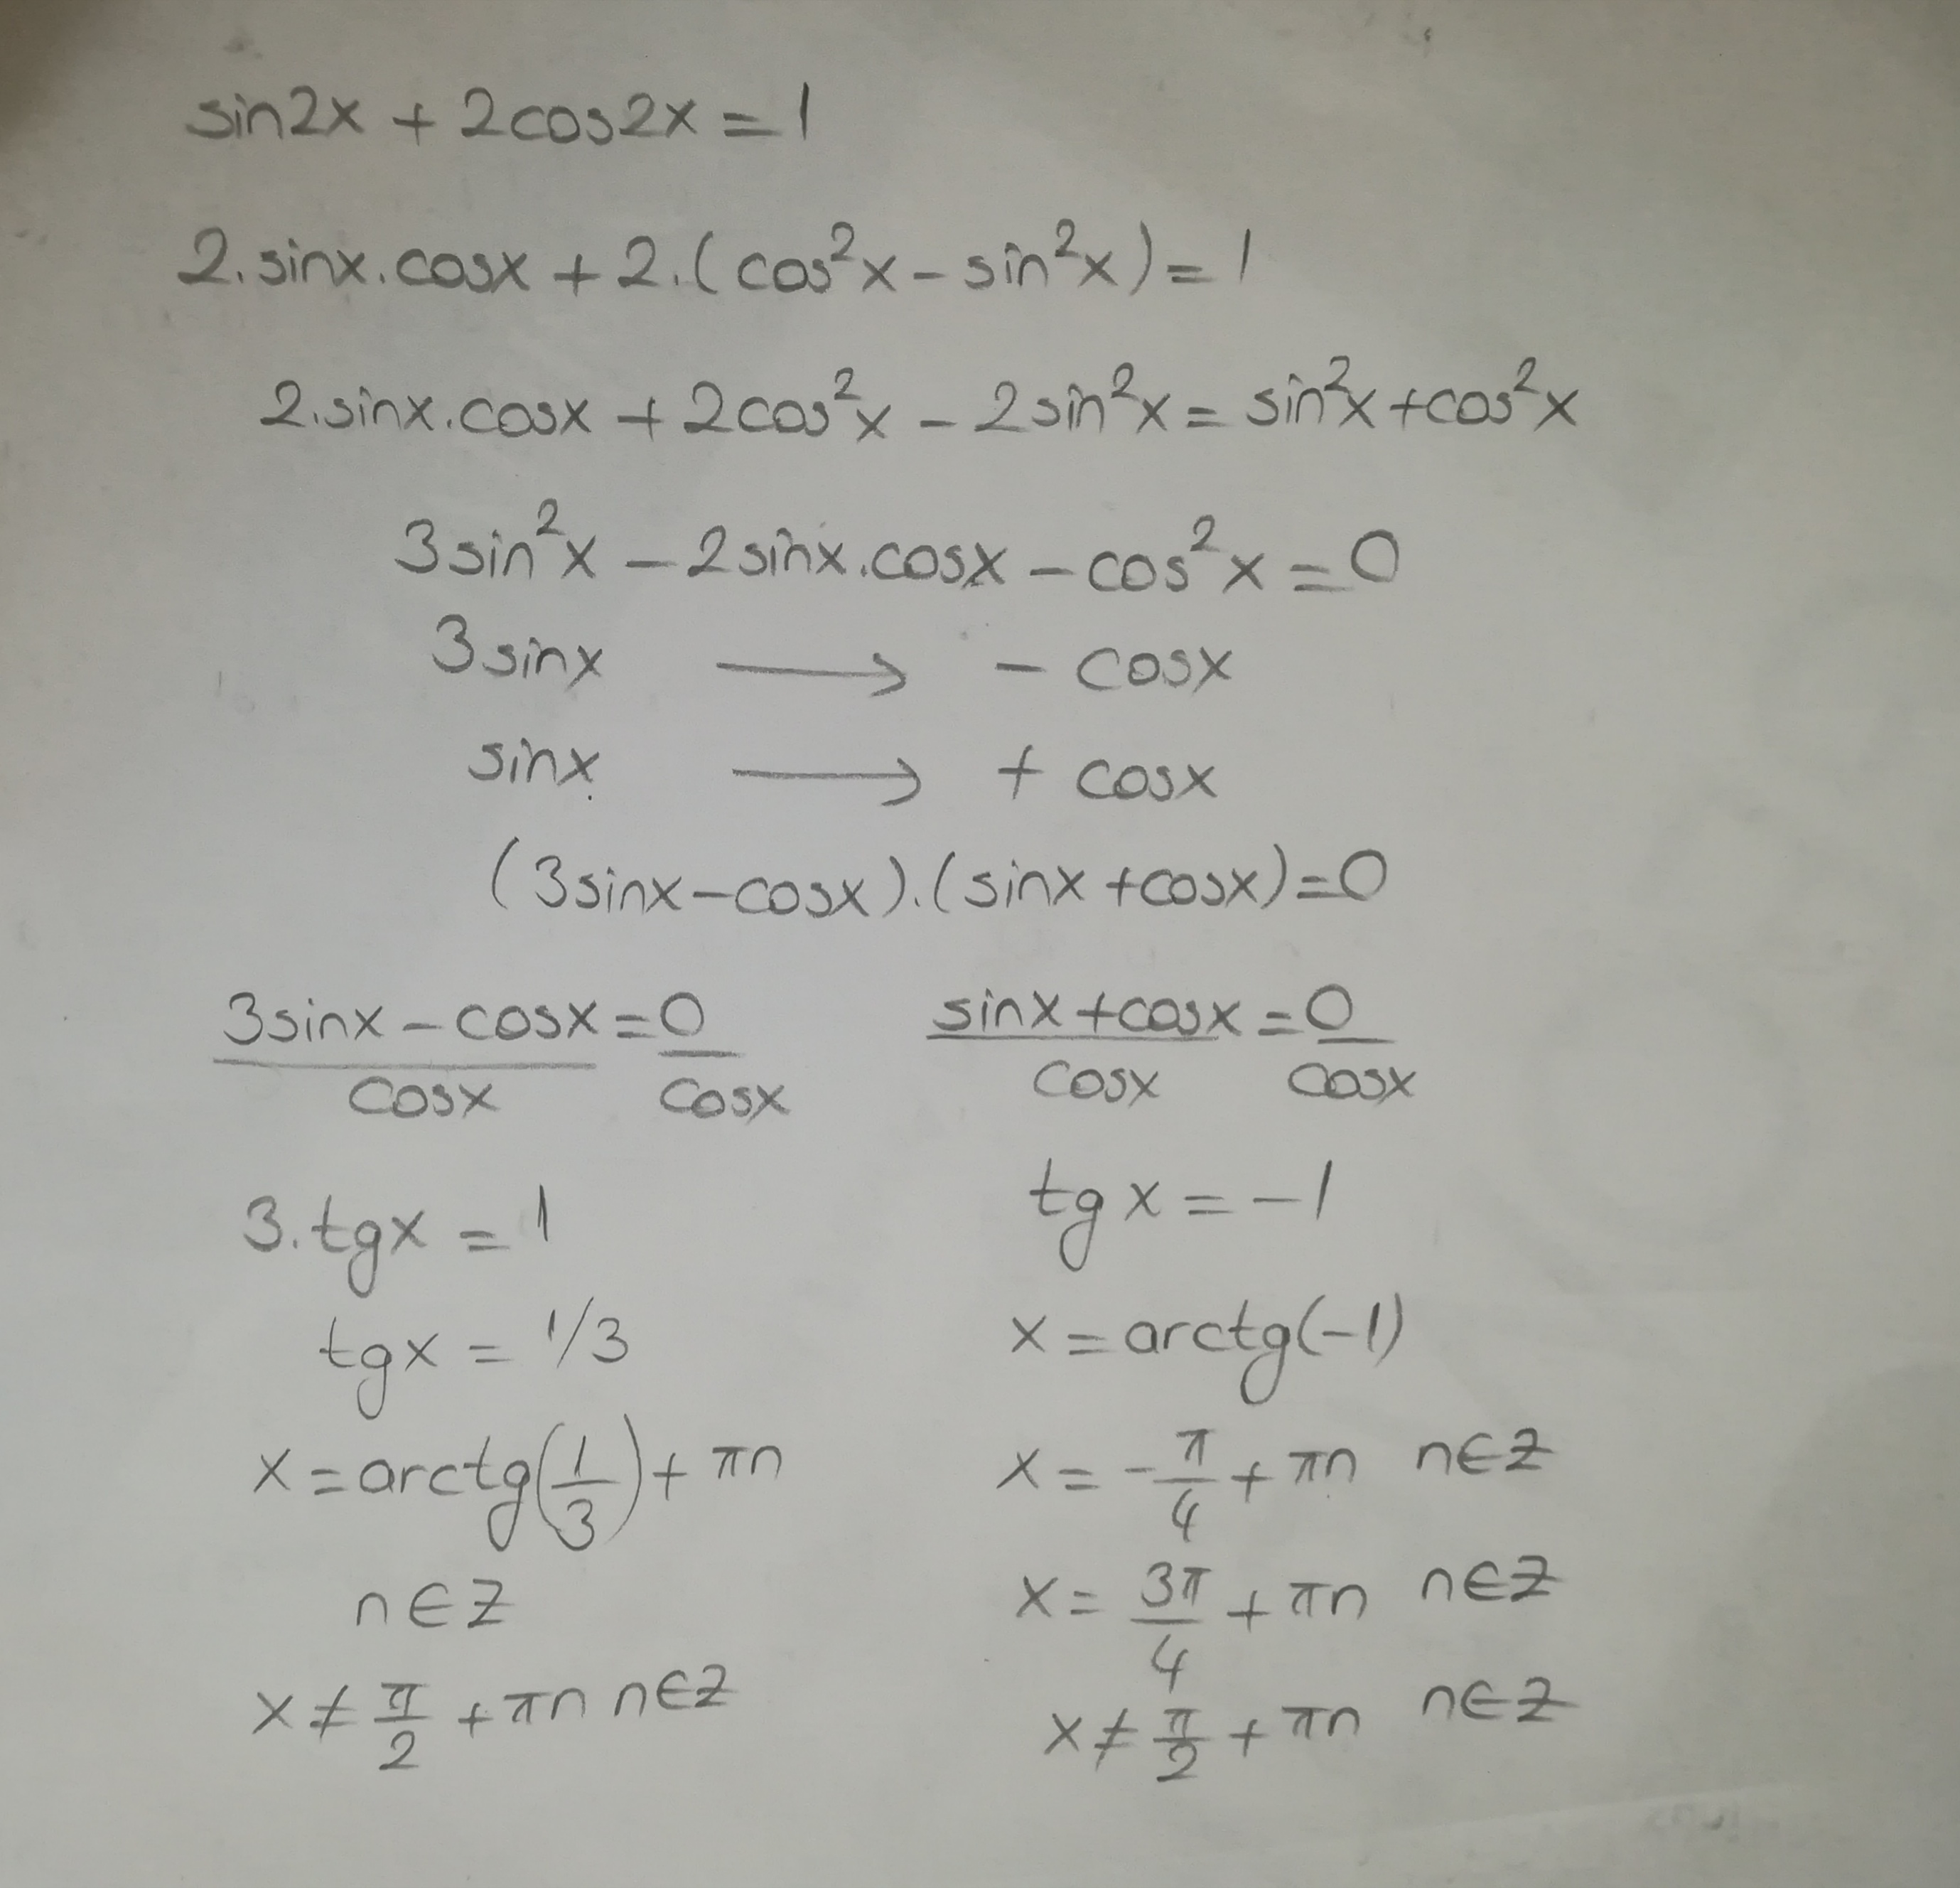 sin2x + 2cos2x = 1
2.sinx.cosx + 2.(cos²x - sin²x) = 1
2.sinx.cosx + 2cos²x - 2sin²x = sin²x + cos²x
3sin²x - 2sinx.cosx - cos²x = 0
3sinx → - cosx
sinx → + cosx
(3sinx - cosx).(sinx + cosx) = 0
3sinx - cosx = 0
cosx cosx
3.tgx = 1
tgx = 1/3
x = arctg(1/3) + πn
n∈Z
x ≠ π/2 + πn n∈Z
sinx + cosx = 0
cosx cosx
tgx = -1
x = arctg(-1)
x = -π/4 + πn n∈Z
x = 3π/4 + πn n∈Z
x ≠ π/2 + πn n∈Z